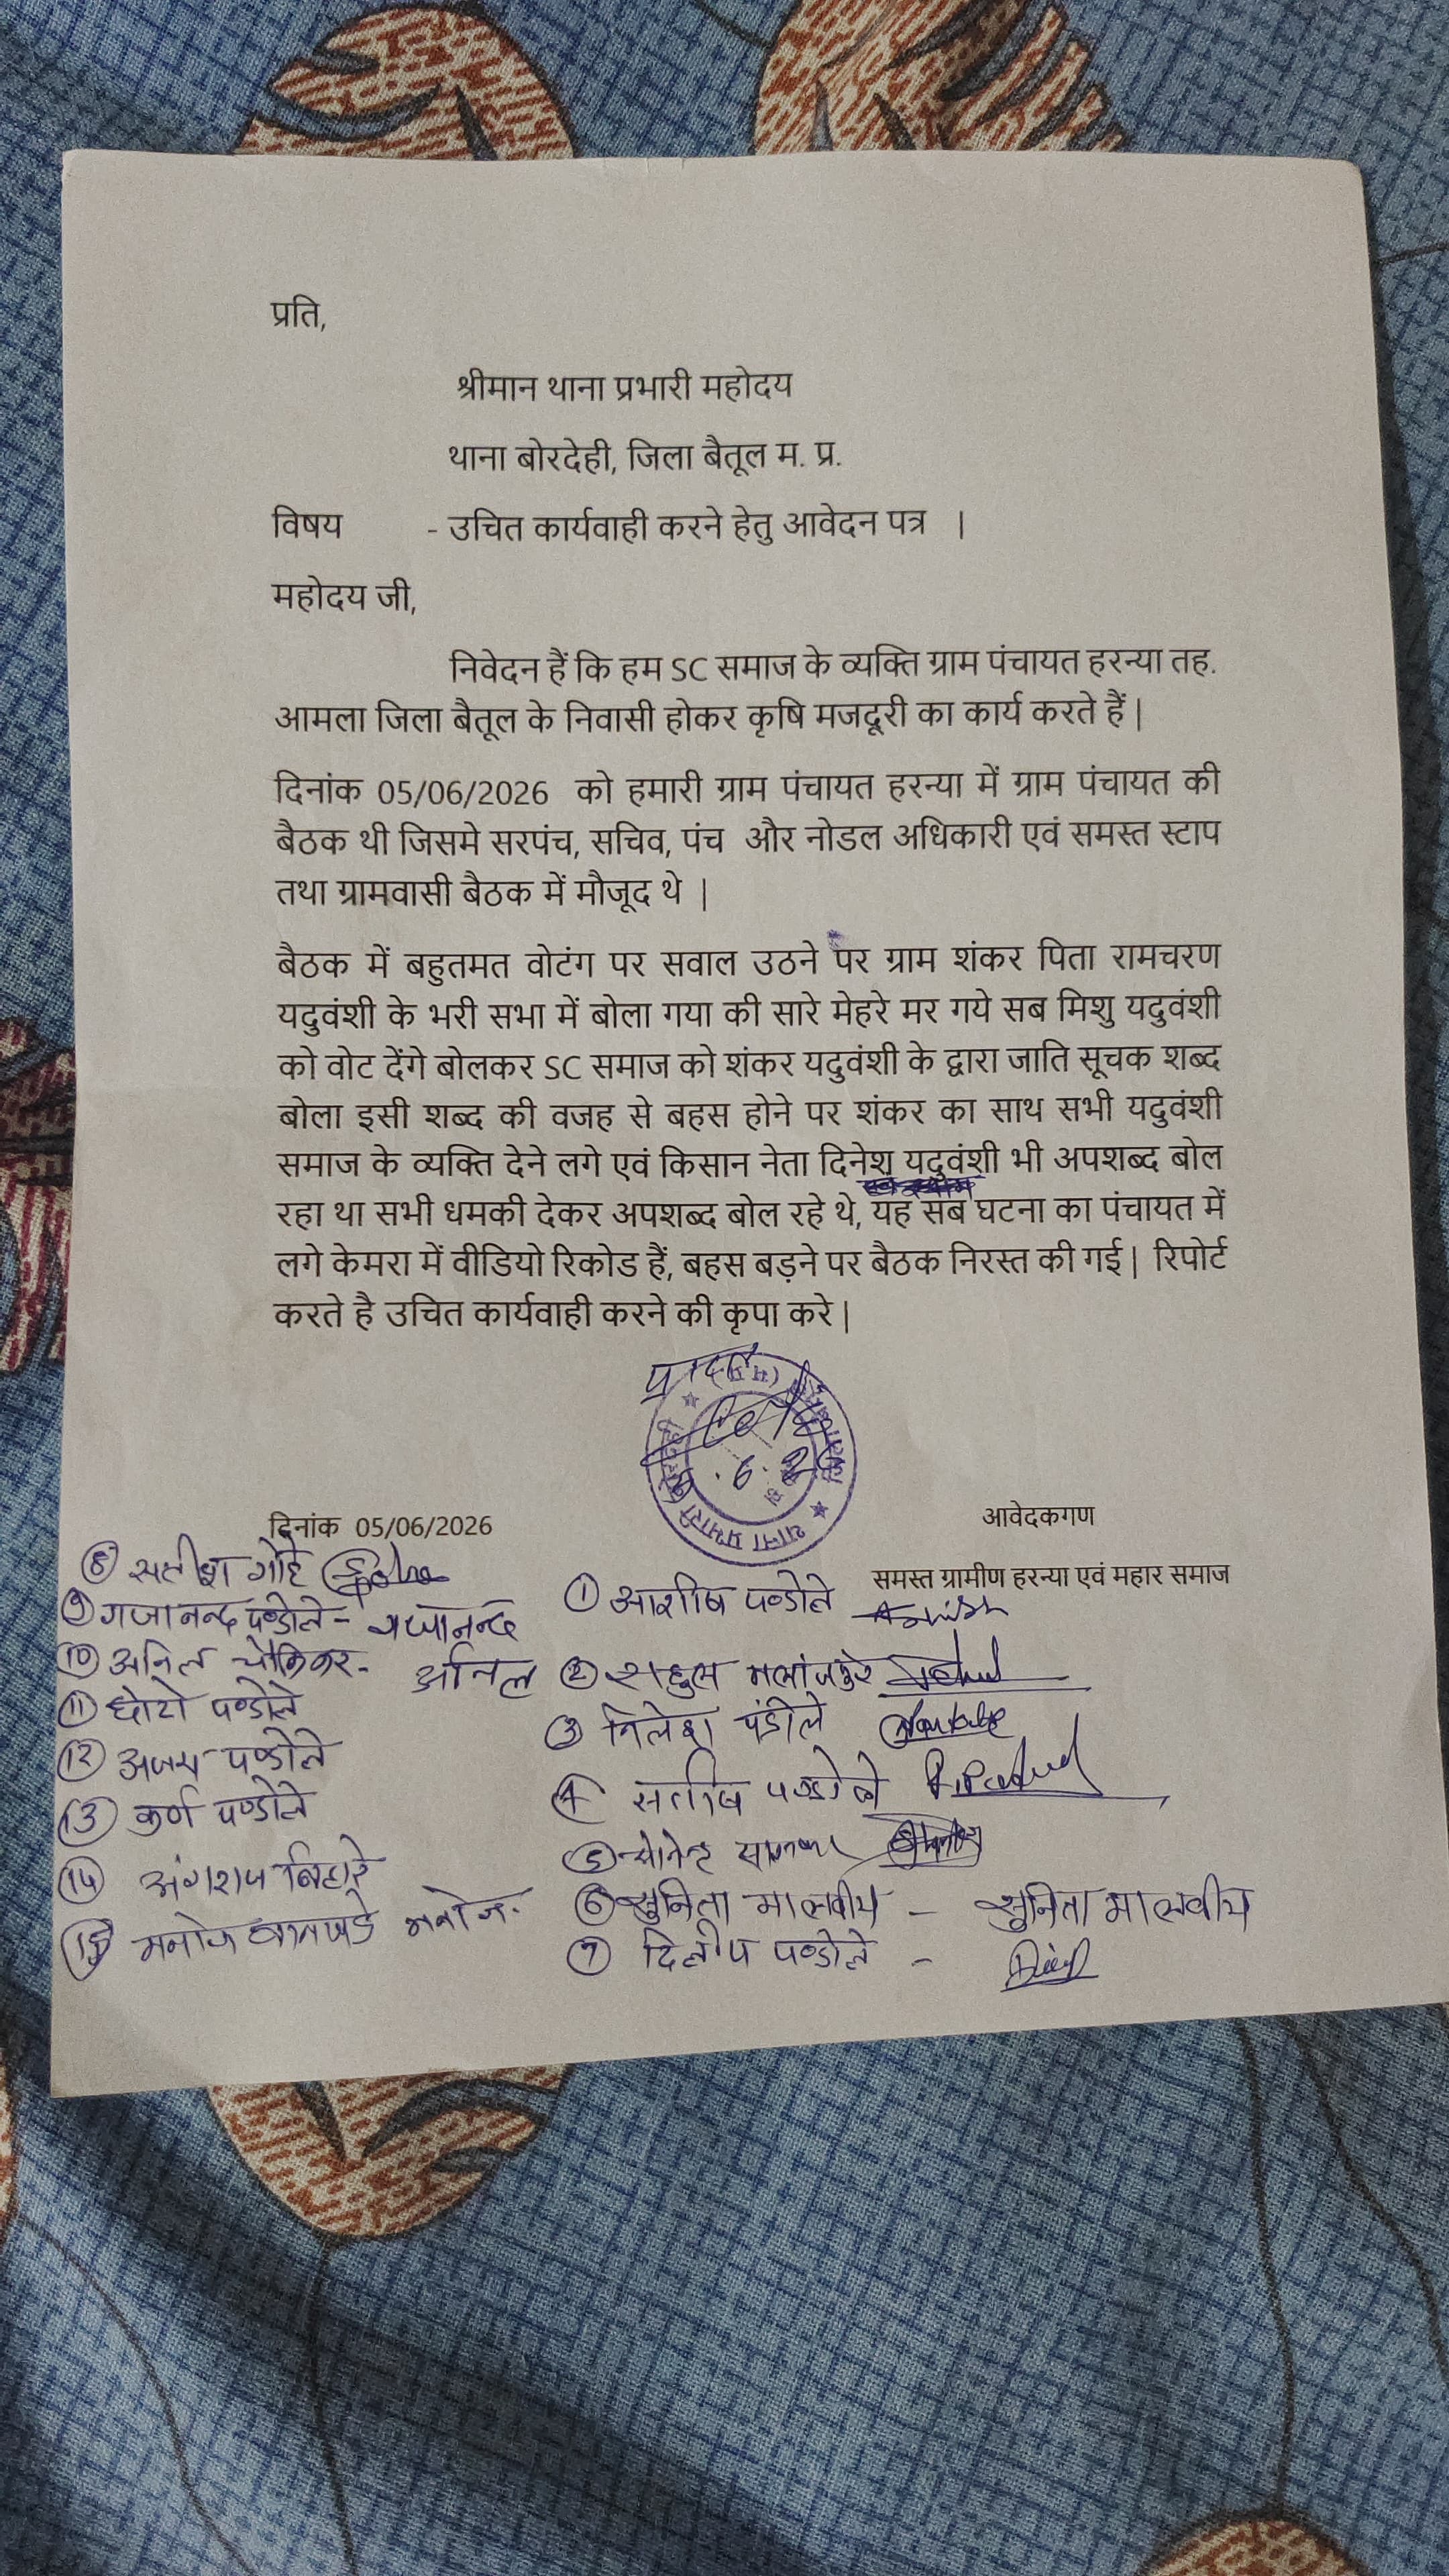 प्रति,
श्रीमान थाना प्रभारी महोदय
थाना बोरदेही, जिला बैतूल म. प्र.
विषय - उचित कार्यवाही करने हेतु आवेदन पत्र |
महोदय जी,
निवेदन हैं कि हम SC समाज के व्यक्ति ग्राम पंचायत हरन्या तह.
आमला जिला बैतूल के निवासी होकर कृषि मजदूरी का कार्य करते हैं |
दिनांक 05/06/2026 को हमारी ग्राम पंचायत हरन्या में ग्राम पंचायत की
बैठक थी जिसमे सरपंच, सचिव, पंच और नोडल अधिकारी एवं समस्त स्टाप
तथा ग्रामवासी बैठक में मौजूद थे |
बैठक में बहुतमत वोटंग पर सवाल उठने पर ग्राम शंकर पिता रामचरण
यदुवंशी के भरी सभा में बोला गया की सारे मेहरे मर गये सब मिशु यदुवंशी
को वोट देंगे बोलकर SC समाज को शंकर यदुवंशी के द्वारा जाति सूचक शब्द
बोला इसी शब्द की वजह से बहस होने पर शंकर का साथ सभी यदुवंशी
समाज के व्यक्ति देने लगे एवं किसान नेता दिनेश यदुवंशी भी अपशब्द बोल
रहा था सभी धमकी देकर अपशब्द बोल रहे थे, यह सब घटना का पंचायत में
लगे केमरा में वीडियो रिकोड हैं, बहस बड़ने पर बैठक निरस्त की गई | रिपोर्ट
करते है उचित कार्यवाही करने की कृपा करे |
थाना प्रभारी
दिनांक 05/06/2026
आवेदकगण
समस्त ग्रामीण हरन्या एवं महार समाज
① आशीष पण्डोले Ashish
② राहुल Rahul
③ निलेश पंडोले
④ सतीष पण्डोले
⑤
⑥ सुनिता मालवीय - सुनिता मालवीय
⑦ दिलीप पण्डोले -
⑧ सतीश गोहे
⑨ गजानन्द पण्डोले - गजानन्द
⑩ अनिल चौकिकर - अनिल
⑪ छोटो पण्डोले
⑫ अजय पण्डोले
⑬ कर्ण पण्डोले
⑭ अंगराज बिहारे
⑮ मनोज मनोज